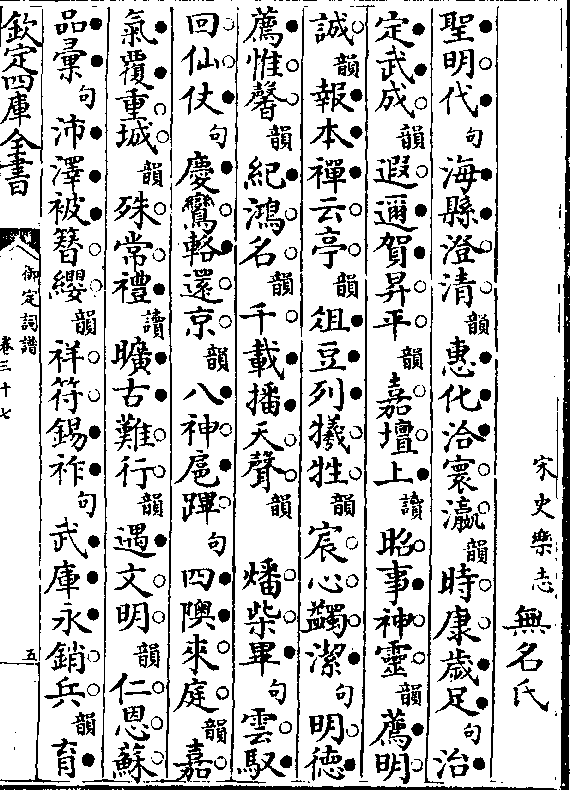 宋史樂志　無名氏
聖明代句海縣澄清韻惠化洽寰瀛韻時康歲足句治
定武成韻遐邇賀昇平韻嘉壇上讀昭事神靈韻薦明
誠韻報本禪云亭韻俎豆列犧牲韻宸心蠲潔句明德
薦惟馨韻紀鴻名韻千載播天聲韻　燔柴畢句雲馭
回仙仗句慶鸞輅還京韻八神扈蹕句四隩來庭韻嘉
氣覆重城韻殊常禮讀曠古難行韻遇文明韻仁恩蘇
品彙句沛澤被簪纓韻祥符錫祚句武庫永銷兵韻育
欽定四庫全書
御定詞譜
卷三十七
五